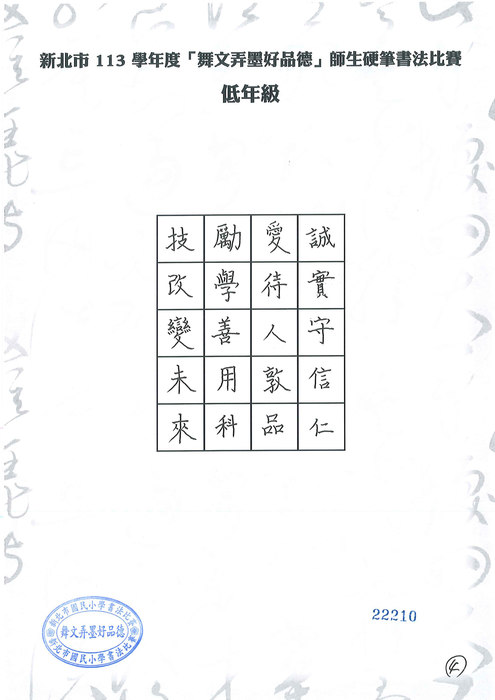 新北市 113 學年度「舞文弄墨好品德」師生硬筆書法比賽
低年級
誠實守信仁
愛待人敦品
勵學善用科
技改變未來
新北市國民小學書法比賽
舞文弄墨好品德
新北市國民小學書法比賽
22210
4